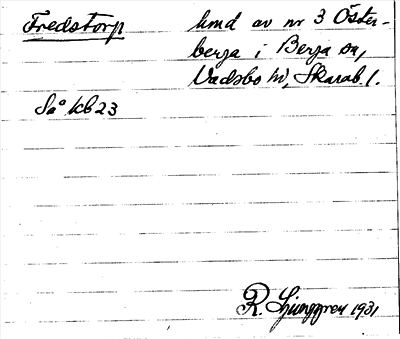 Fredstorp
hmd av nr 3 Öster-
berga i Berga sn,
Vadsbo hd, Skarab. l.
Så 1Kb23
R. Ljunggren 1931